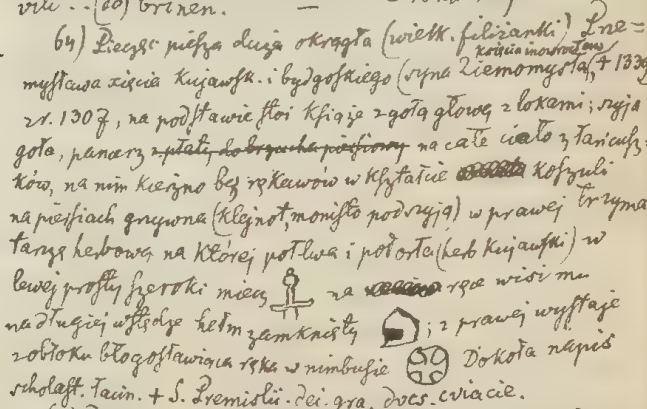 64) Pieczęć piesza duża okrągła (wielk. filiżanki) Prze=
księcia inowrocław
mysława xięcia Kujawsk. i bydgoskiego (syna Ziemomysła, + 133
z r. 1307, na podstawie stoi książe z gołą głową z lokami; szyja
goła, pancerz z płatą do brzucha piersiowy na całe ciało z łańcusz=
ków, na nim kieżno bez rękawów w kształcie koszuli
na piersiach grzywna (klejnot, monisto pod szyją) w prawej trzyma
tarzę herbową na której pół lwa i pół orła (herb Kujawski) w
lewej prosty szeroki miecz na ręce wisi mu
na długiej wstędze hełm zamknięty ; z prawej wystaje
z obłoku błogosławiąca ręka w nimbusie Dokoła napis
scholast. łacin. + S. Premislii. dei. gra. dvcs. cviacie.